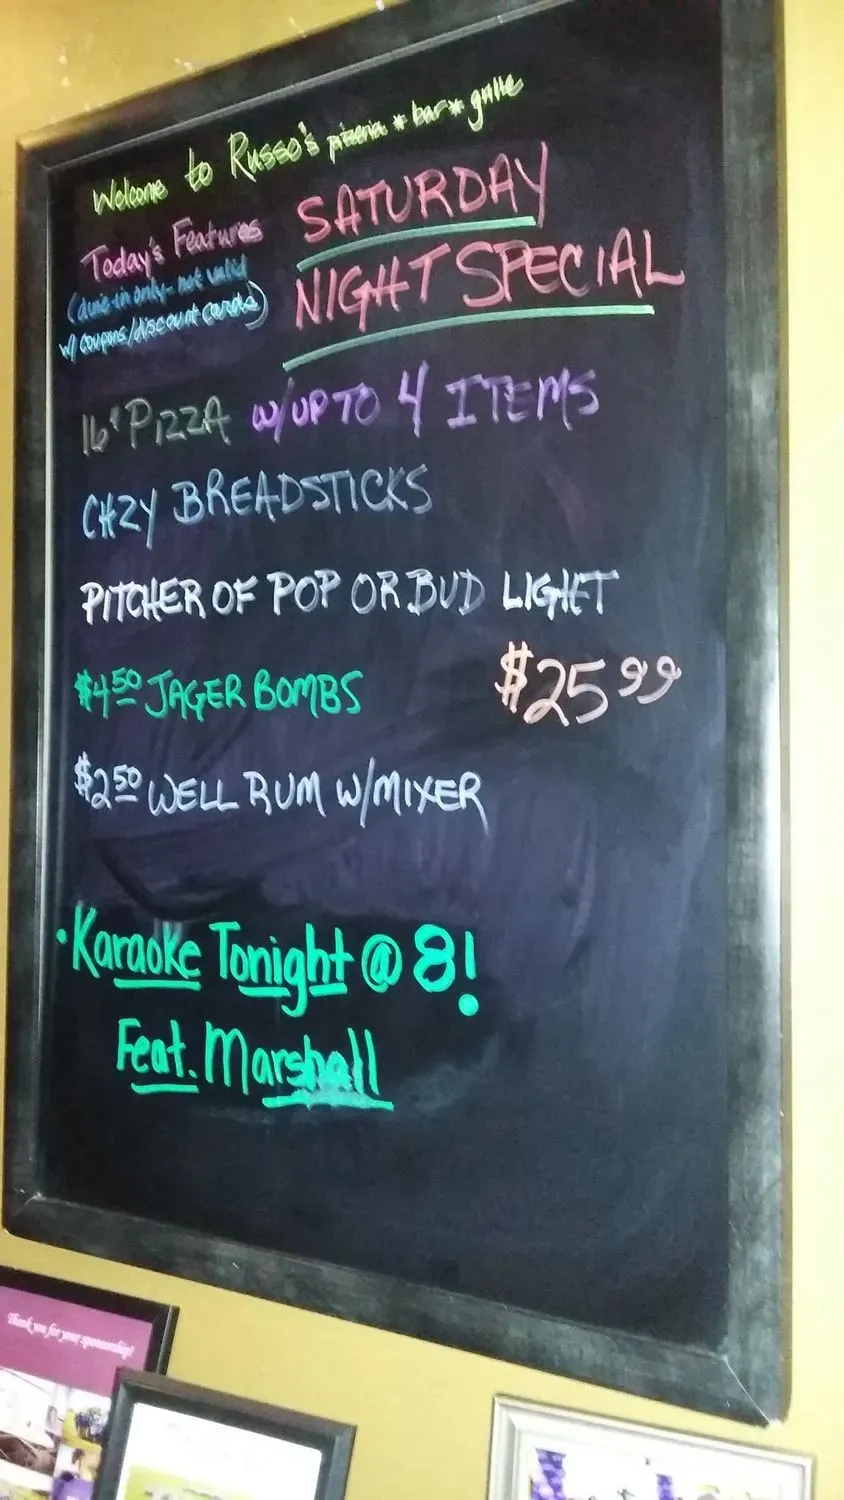 Welcome to Russo's pizzeria * bar * grille
Today's Features
(dine-in only - not valid
w/ coupons/discount cards)
SATURDAY
NIGHT SPECIAL
16" PIZZA W/UP TO 4 ITEMS
CHZY BREADSTICKS
PITCHER OF POP OR BUD LIGHT
$25.99
$4.50 JAGER BOMBS
$2.50 WELL RUM W/MIXER
• Karaoke Tonight @ 8!
Feat. Marshall
Thank you for your sponsorship!